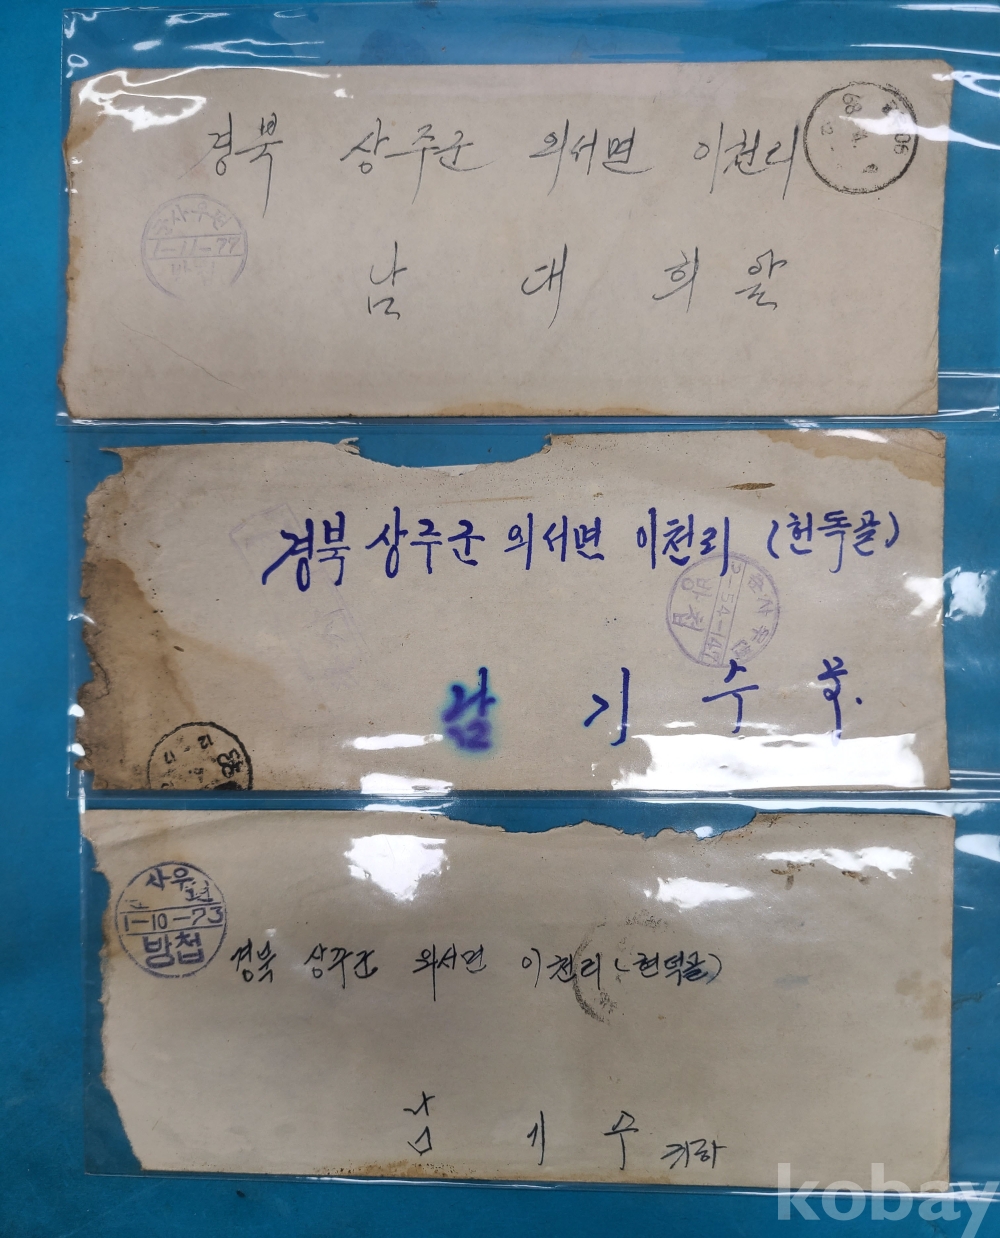 경북 상주군 외서면 이천리
군사우편
1-11-77
남 대 희 앞
경북 상주군 외서면 이천리 (헌독골)
군사우편
방첩
남 기 수
사우편
1-10-73
방첩
경북 상주군 외서면 이천리 (현덕골)
남 기 수 귀하
kobay